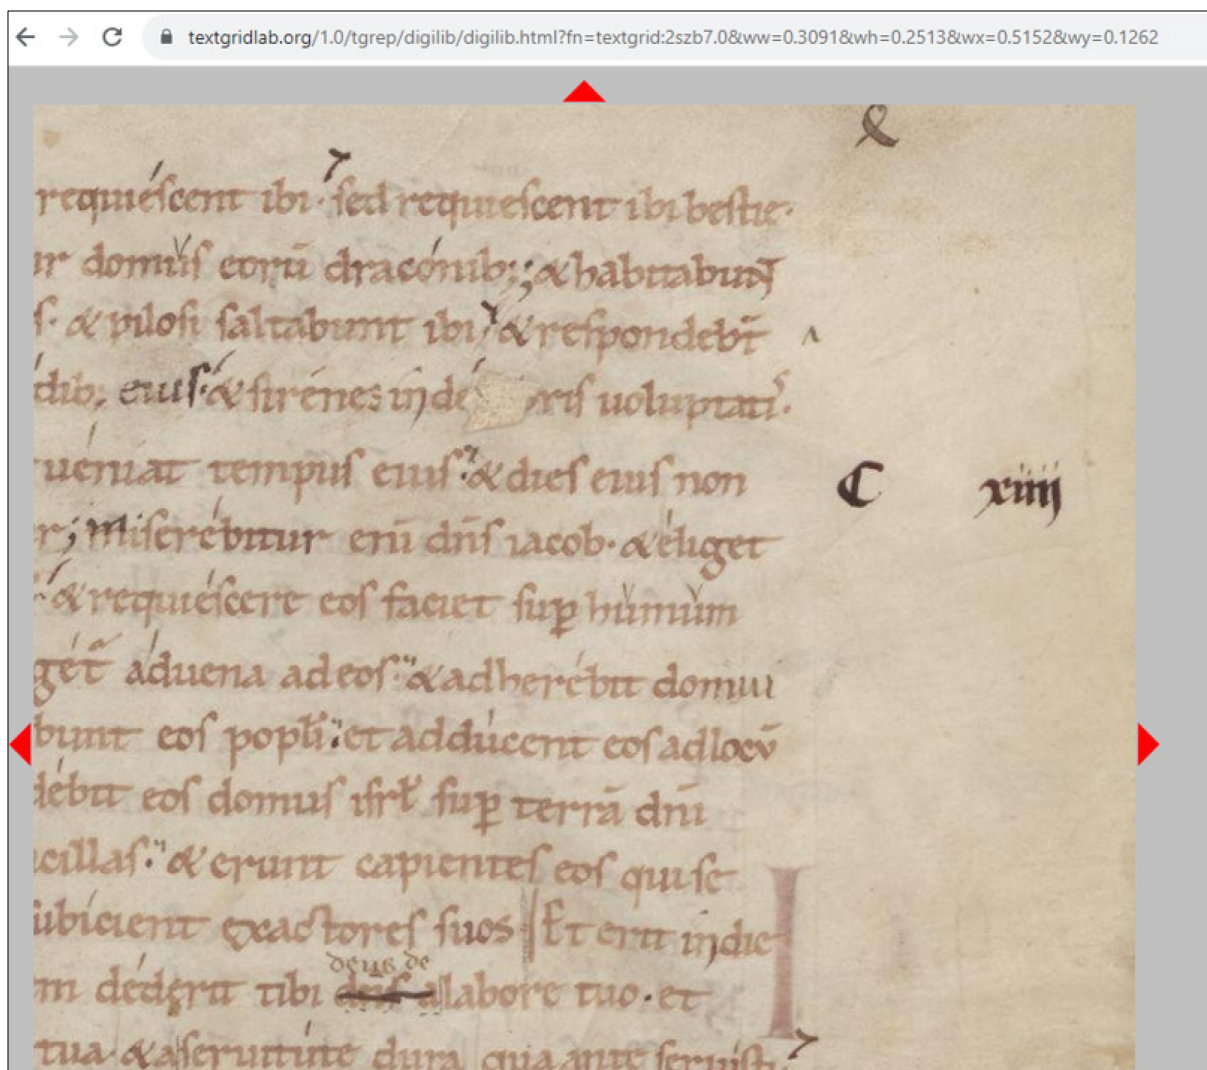 textgridlab.org/1.0/tgrep/digilib/digilib.html?fn=textgrid:2szb7.0&ww=0.3091&wh=0.2513&wx=0.5152&wy=0.1262
&
requiéſcent ibi· ſed requieſcent ibi beſtie·
ur domuſ eorū dracónib;; & habitabunt
ſ· & piloſi ſaltabunt ibi & reſpondebt̄
dib; eiuſ· & ſirénes in uoluptatiſ·
ueniat tempuſ eiuſ· & dieſ eiuſ non
C xiiij
r; Miſerébitur eni̅ dn̅ſ iacob· & éliget
& requieſcere eoſ faciet ſuꝑ humum
gét̄ áduena ad eoſ· & adherébit domui
bunt eoſ popl̅i· et addúcent eoſ ad locū
débit eoſ domuſ iſrl̅ ſuꝑ terrā dn̅i
cillaſ· & erunt capienteſ eoſ qui ſe
ubícient exactoreſ ſuos Et erit in die
I
deus de
m déderit tibi dn̅ſ a labore tuo· et
tua· & a ſeruitúte dura qua ante ſeruiſti·